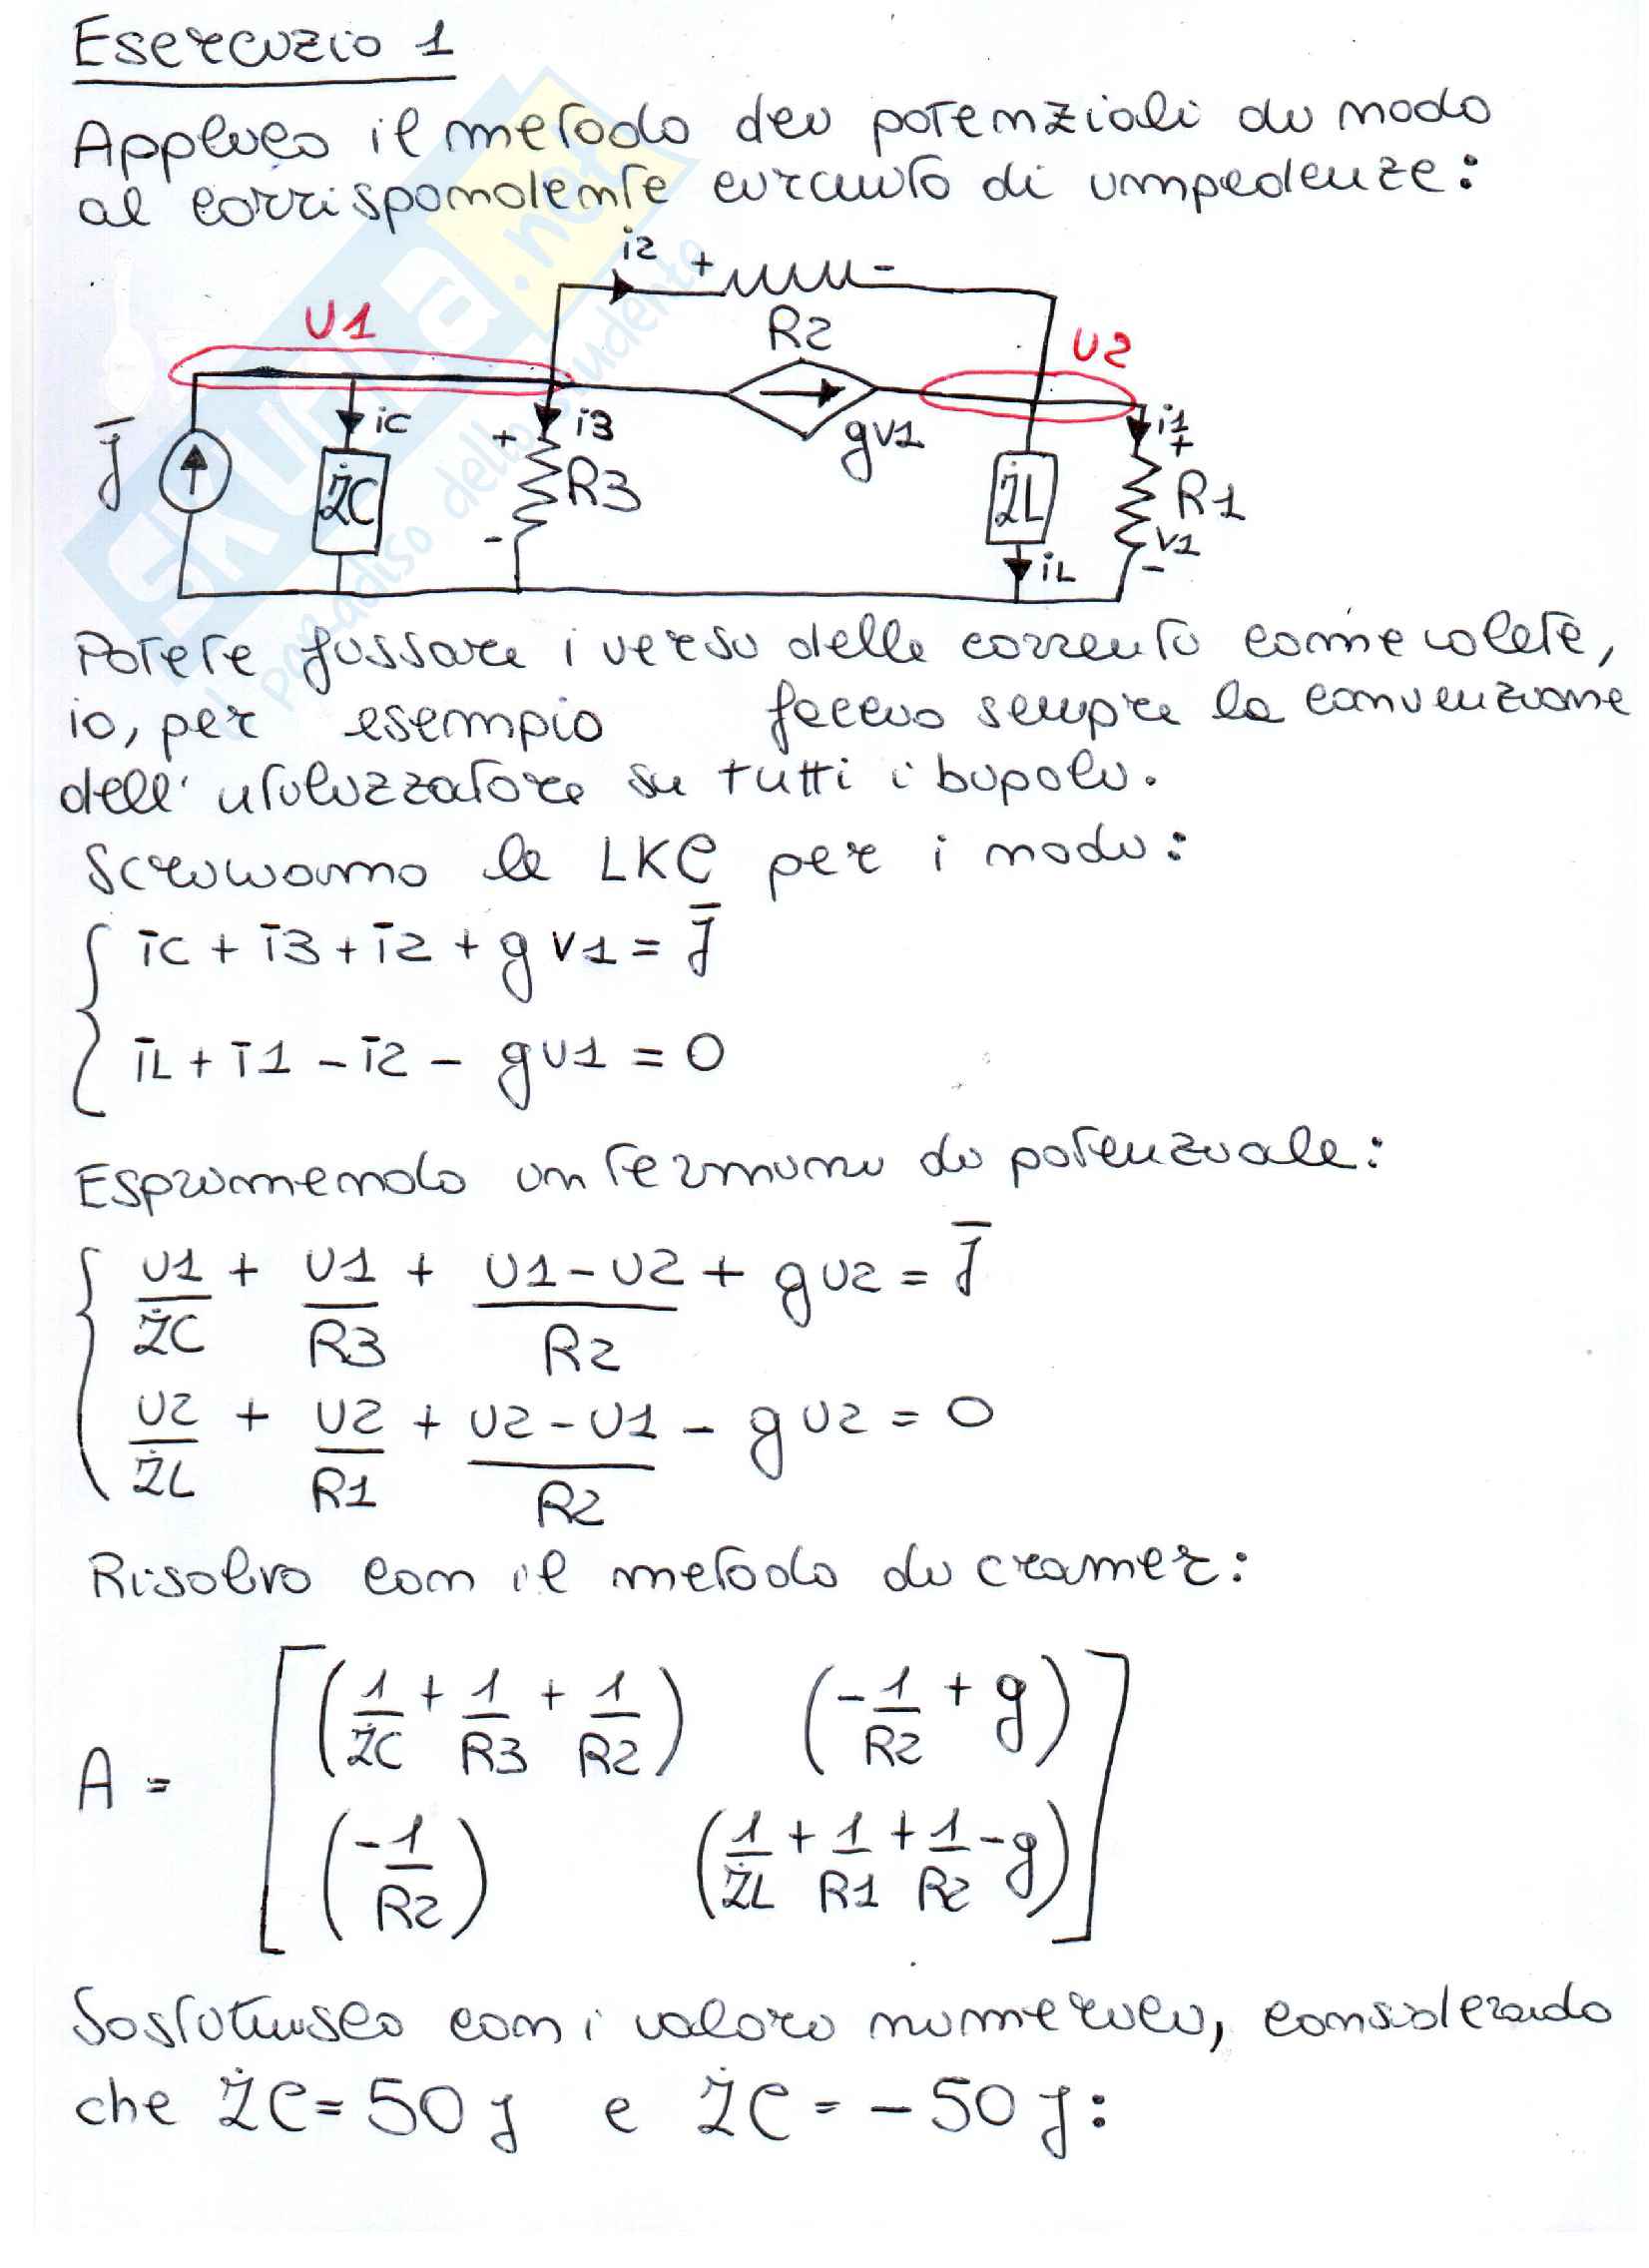 Esercizio 1
Applico il metodo dei potenziali di nodo
al corrispondente circuito di impedenze:
i2 + -
R2
U1
U2
J
ic
ŻC
+ i3
R3
-
gv1
ŻL
iL
i1
+
R1
v1
-
SKUOLA.net
il paradiso dello studente
Potete fissare i verso delle correnti come volete,
io, per esempio faccio sempre la convenzione
dell'utilizzatore su tutti i bipoli.
Scriviamo le LKC per i nodi:
īc + ī3 + ī2 + g v1 = J̄
īL + ī1 - ī2 - g v1 = 0
Esprimendo in termini di potenziale:
U1/ŻC + U1/R3 + (U1-U2)/R2 + g U2 = J̄
U2/ŻL + U2/R1 + (U2-U1)/R2 - g U2 = 0
Risolvo con il metodo di cramer:
A = [ (1/ŻC + 1/R3 + 1/R2) (-1/R2 + g)
(-1/R2) (1/ŻL + 1/R1 + 1/R2 - g) ]
Sostituisco con i valori numerici, considerando
che ŻC = 50 j e ŻC = -50 j: